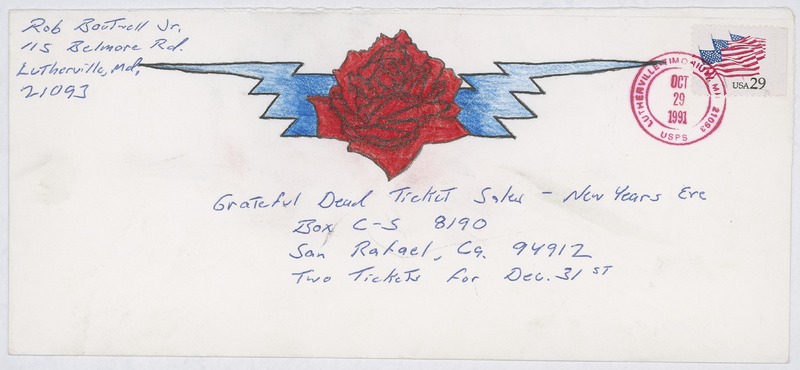 Rob Boutwell Jr.
115 Belmore Rd.
Lutherville, Md,
21093
USA 29
LUTHERVILLE-TIMONIUM MD 21093
OCT
29
1991
USPS
Grateful Dead Ticket Sales - New Years Eve
Box C-S 8190
San Rafael, Ca. 94912
Two Tickets for Dec. 31ST